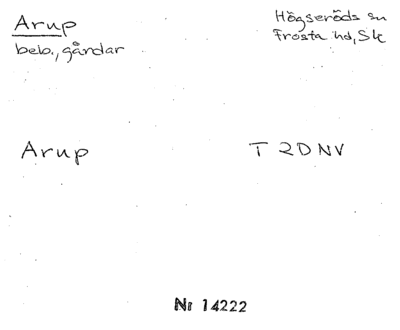 Arup
beb., gårdar
Högseröds sn
Frosta hd, Sk
Arup
T 2D NV
Nr 14222